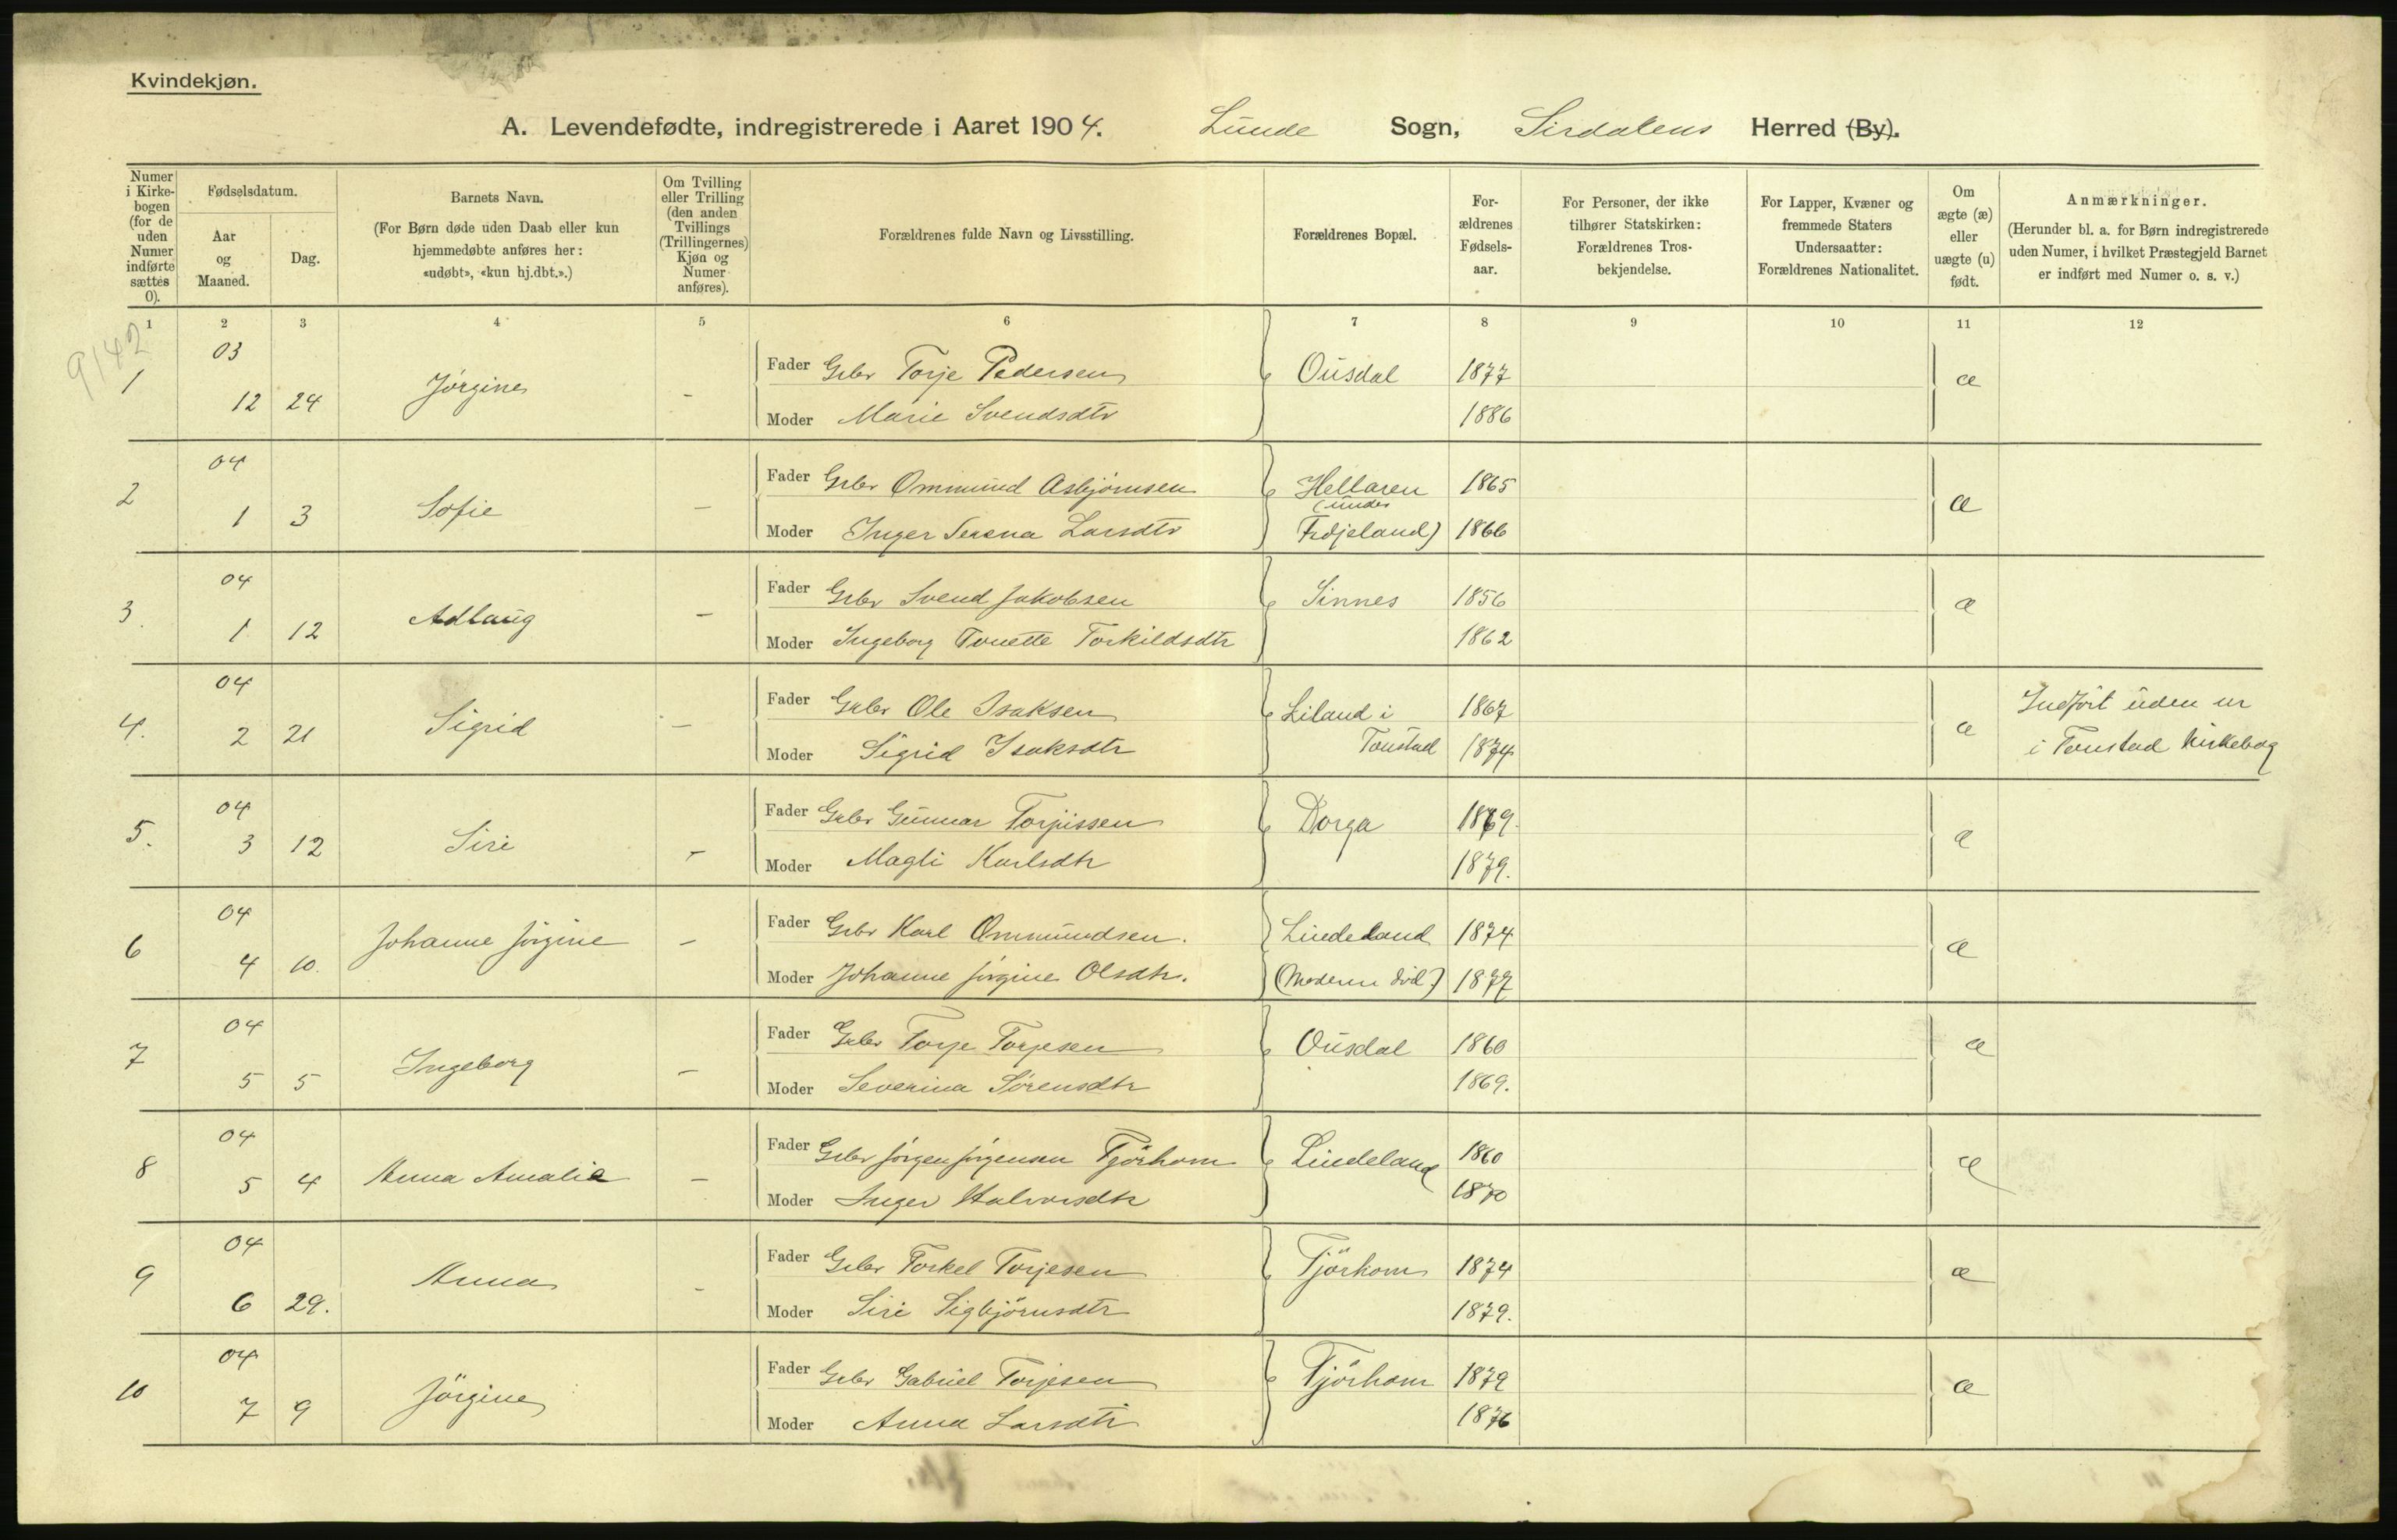 Kvindekjøn.
A. Levendefødte, indregistrerede i Aaret 1904. Lunde Sogn, Sirdalens Herred (By).
Numer i Kirke-bogen (for de uden Numer indførte sættes 0).
Fødselsdatum.
Aar og Maaned.
Dag.
Barnets Navn.
(For Børn døde uden Daab eller kun hjemmedøbte anføres her: «udøbt», «kun hj.dbt.».)
Om Tvilling eller Trilling (den anden Tvillings (Trillingernes) Kjøn og Numer anføres).
Forældrenes fulde Navn og Livsstilling.
Forældrenes Bopæl.
For-ældrenes Fødsels-aar.
For Personer, der ikke tilhører Statskirken: Forældrenes Tros-bekjendelse.
For Lapper, Kvæner og fremmede Staters Undersaatter: Forældrenes Nationalitet.
Om ægte (æ) eller uægte (u) født.
Anmærkninger.
(Herunder bl. a. for Børn indregistrerede uden Numer, i hvilket Præstegjeld Barnet er indført med Numer o. s. v.)
1 2 3 4 5 6 7 8 9 10 11 12
9142
1 03 12 24 Jørgine - Fader Gbr Torje Pedersen Ousdal 1877 æ
Moder Marie Svendsdtr 1886
2 04 1 3 Sofie - Fader Gbr Ommund Asbjørnsen Hellaren 1865 æ
(under
Moder Inger Serena Larsdtr Fidjeland) 1866
3. 04 1 12 Adlaug - Fader Gbr Svend Jakobsen Sinnes 1856 æ
Moder Ingeborg Tonette Torkildsdtr 1862
4. 04 2 21 Sigrid - Fader Gbr Ole Isaksen Liland i 1867 æ Indført uden nr
Moder Sigrid Isaksdtr Tonstad 1874 i Tonstad Kirkebog
5. 04 3 12 Siri - Fader Gbr Gunnar Torjussen Dorga 1869. æ
Moder Magli Karlsdtr 1879.
6 04 4 10. Johanne Jørgine - Fader Gbr Karl Ommundsen. Lindeland 1874 æ
Moder Johanne Jørgine Olsdtr. (Moderen død) 1877
7 04 5 5 Ingeborg - Fader Gbr Torje Torjesen Ousdal 1860 æ
Moder Severina Sørensdtr 1869.
8 04 5 4 Anna Amalie - Fader Gbr Jørgen Jørgensen Tjørhom Lindeland 1860 æ
Moder Inger Halvorsdtr 1870
9 04 6 29. Anna - Fader Gbr Torkel Torjesen Tjørhom 1874 æ
Moder Siri Sigbjørnsdtr 1879.
10 04 7 9 Jørgine Fader Gbr Gabriel Torjesen Tjørhom 1879 æ
Moder Anna Larsdtr 1876